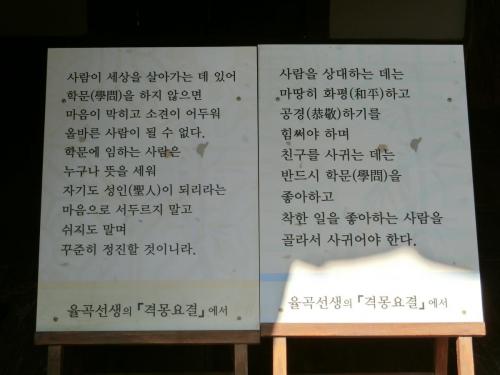 사람이 세상을 살아가는 데 있어
학문(學問)을 하지 않으면
마음이 막히고 소견이 어두워
올바른 사람이 될 수 없다.
학문에 임하는 사람은
누구나 뜻을 세워
자기도 성인(聖人)이 되리라는
마음으로 서두르지 말고
쉬지도 말며
꾸준히 정진할 것이니라.
율곡선생의 『격몽요결』에서
사람을 상대하는 데는
마땅히 화평(和平)하고
공경(恭敬)하기를
힘써야 하며
친구를 사귀는 데는
반드시 학문(學問)을
좋아하고
착한 일을 좋아하는 사람을
골라서 사귀어야 한다.
율곡선생의 『격몽요결』에서